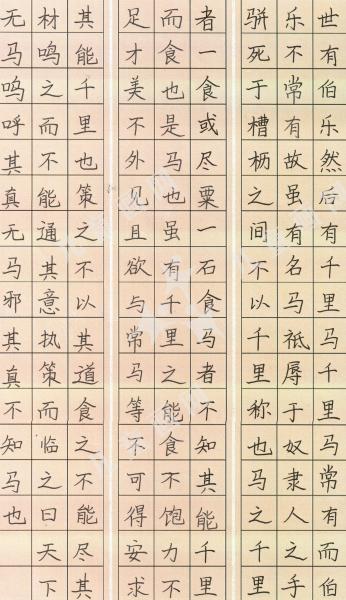 世有伯乐然后有千里马千里马常有而伯
乐不常有故虽有名马祗辱于奴隶人之手
骈死于槽枥之间不以千里称也马之千里
者一食或尽粟一石食马者不知其能千里
而食也是马也虽有千里之能食不饱力不
足才美不外见且欲与常马等不可得安求
其能千里也策之不以其道食之不能尽其
材鸣之而不能通其意执策而临之曰天下
无马呜呼其真无马邪其真不知马也